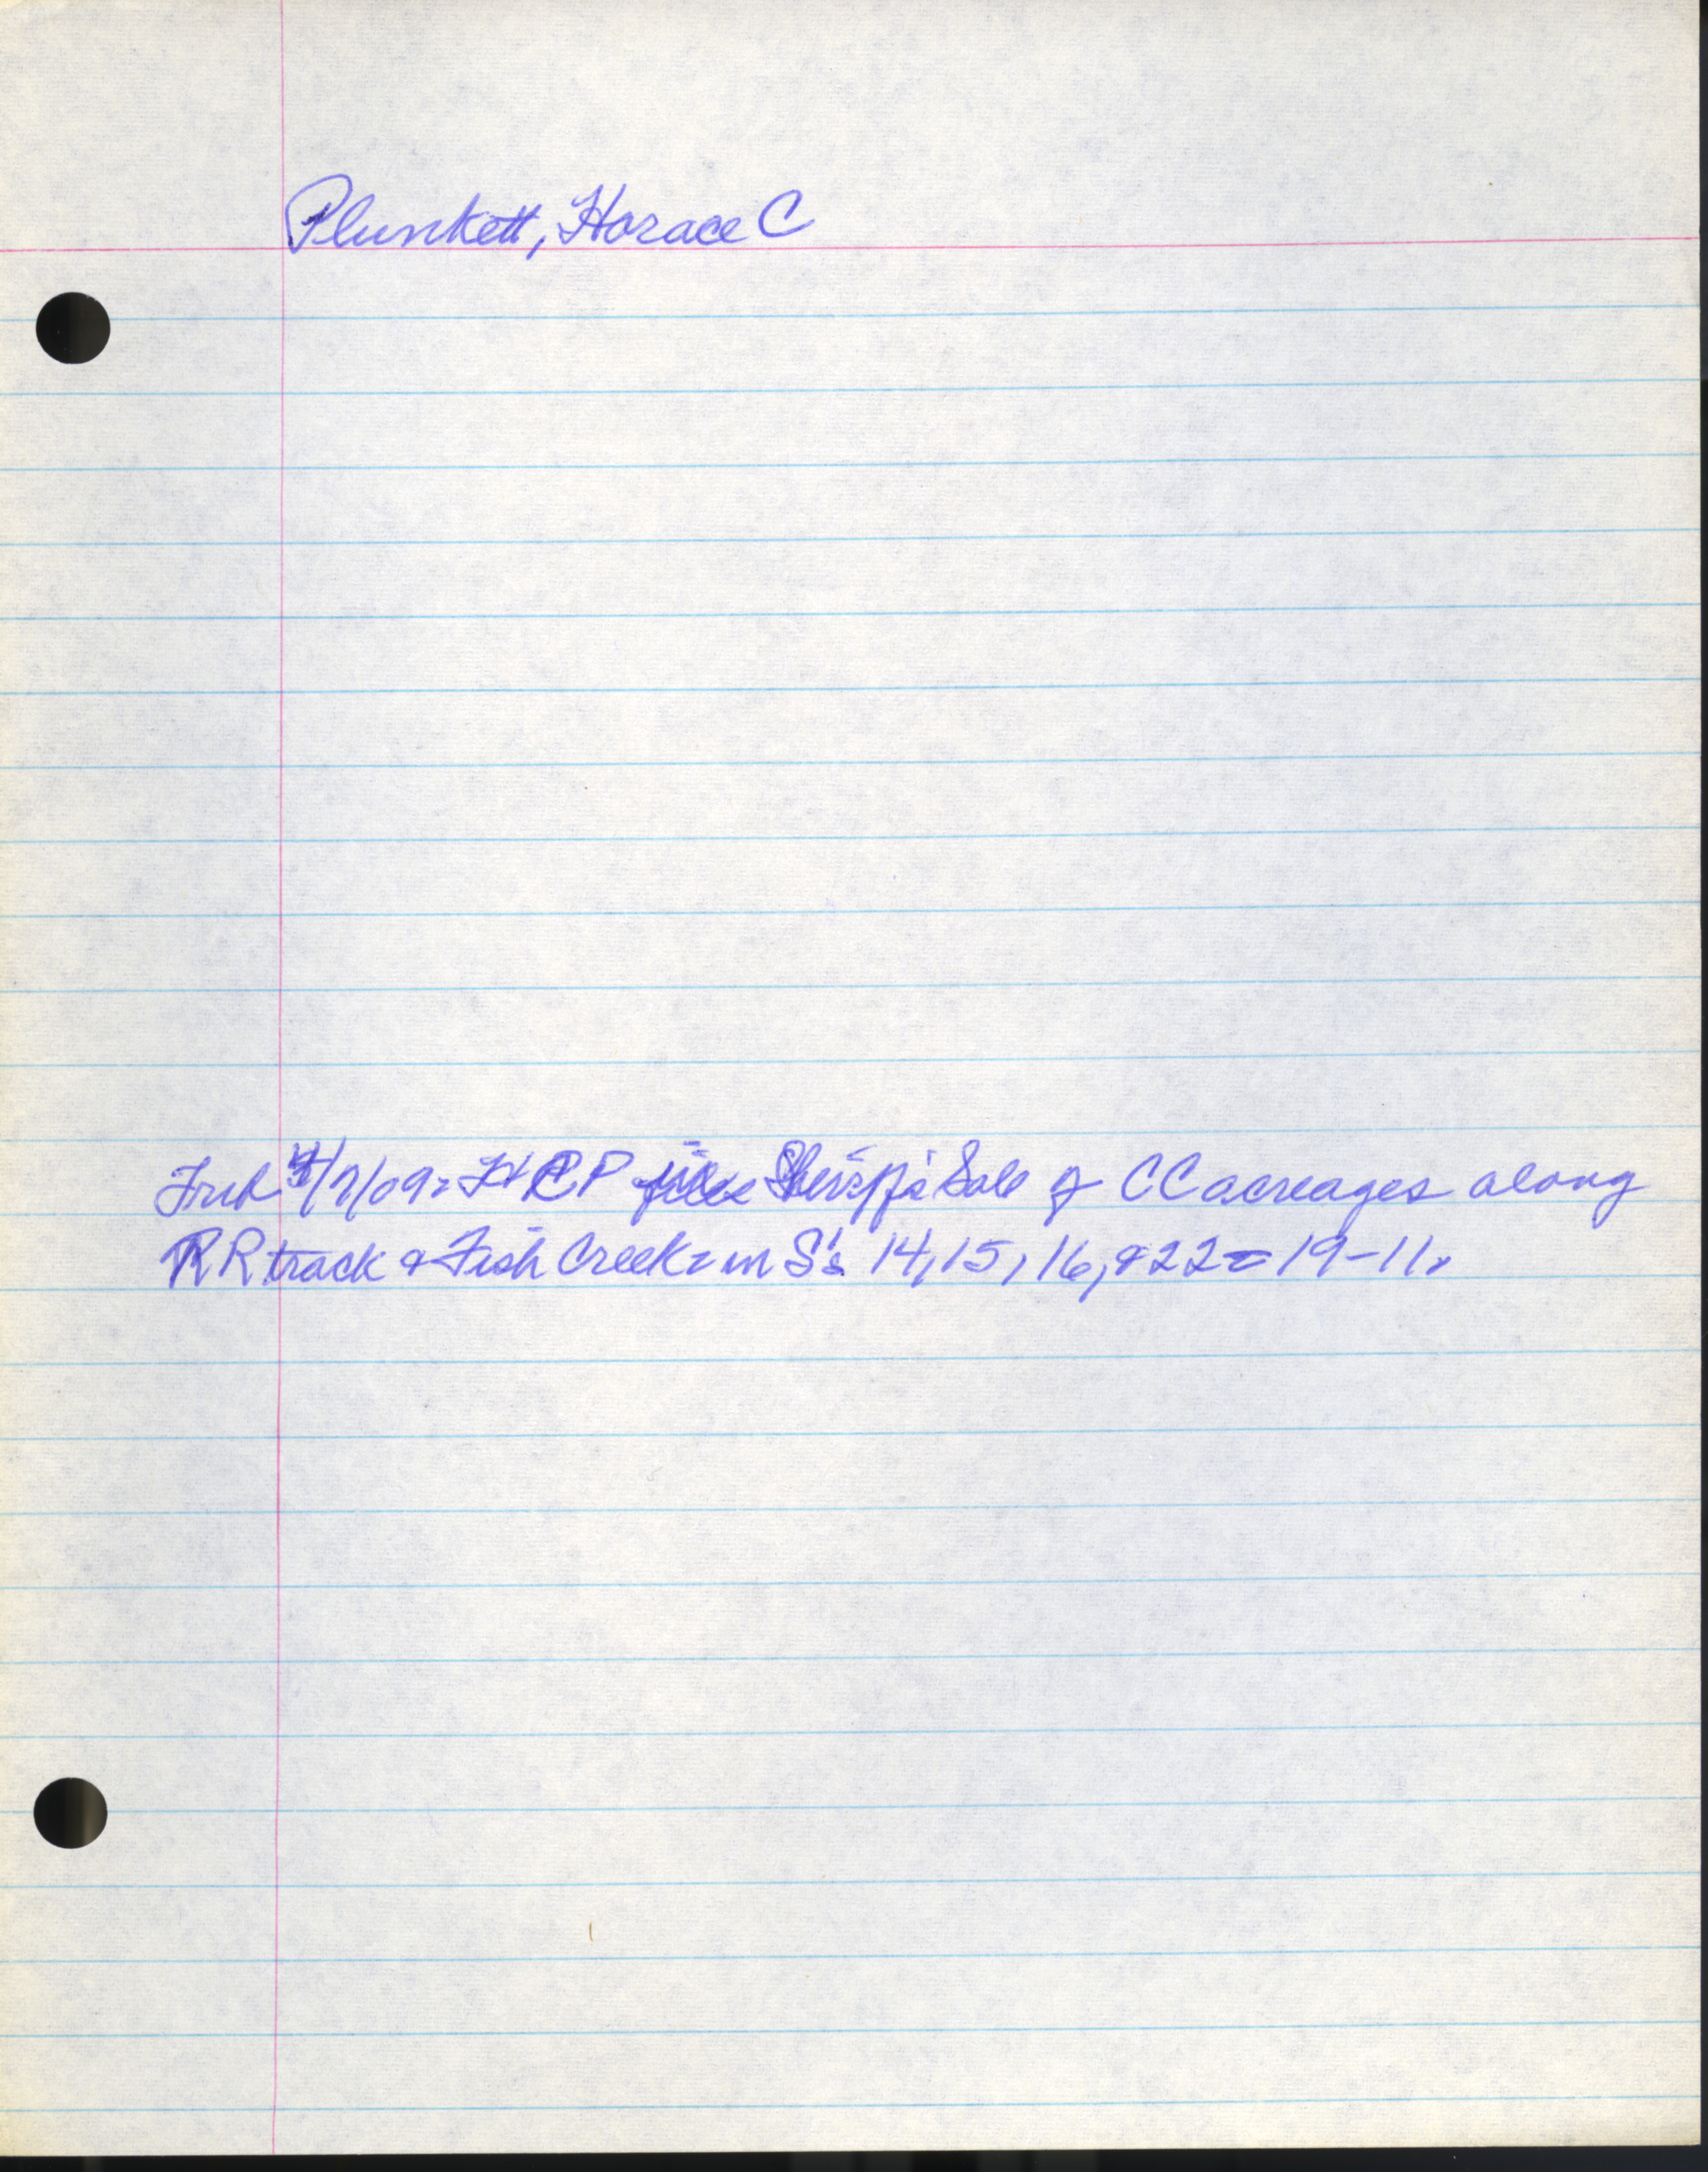 Plunkett, Horace C
Trib 4/7/09 = HCP files Sheriff's Sale of CC acreages along
RR track & Fish Creek = in S's 14, 15, 16, & 22 = 19-11.